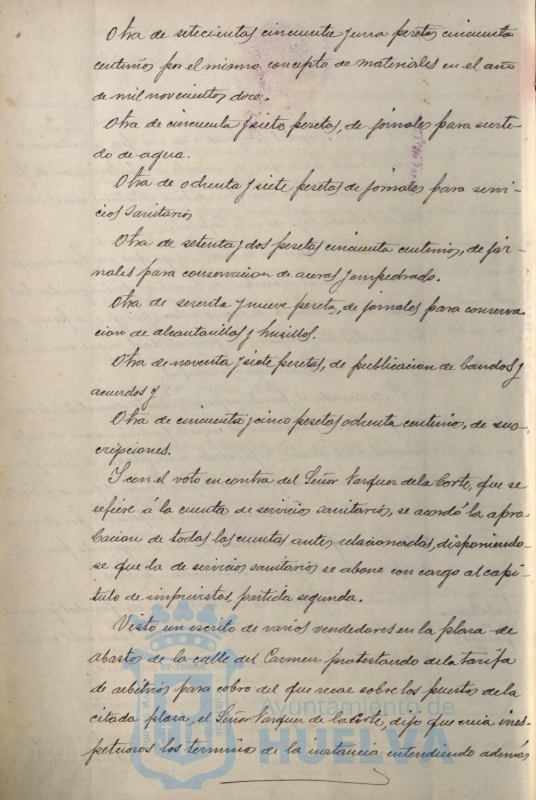 Otra de setecientas cincuenta y una pesetas cincuenta
centimos por el mismo concepto de materiales en el año
de mil novecientos doce.
Otra de cincuenta y siete pesetas, de jornales para surti-
do de agua.
Otra de ochenta y siete pesetas de jornales para servi-
cios sanitarios
Otra de setenta y dos pesetas cincuenta centimos, de jor-
nales para conservacion de aceras y empedrado.
Otra de sesenta y nueve peseta, de jornales para conserva
cion de alcantarillas y husillos.
Otra de noventa y siete pesetas, de publicacion de bandos y
acuerdos y
Otra de cincuenta y cinco pesetas ochenta centimos, de sus-
cripciones.
Y con el voto en contra del Señor Vazquez de la Corte, que se
refiere á la cuenta de servicios sanitarios, se acordó la apro
bacion de todas las cuentas antes relacionadas, disponiendo-
se que la de servicios sanitarios se abone con cargo al capi-
tulo de imprevistos, partida segunda.
Visto un escrito de varios vendedores en la plaza de
abastos de la calle del Carmen protestando de la tarifa
de arbitrios para cobro del que recae sobre los puestos de la
citada plaza, el Señor Vazquez de la Corte, dijo que creia irres-
petuosos los termino de la instancia entendiendo además
Ayuntamiento de
HUELVA